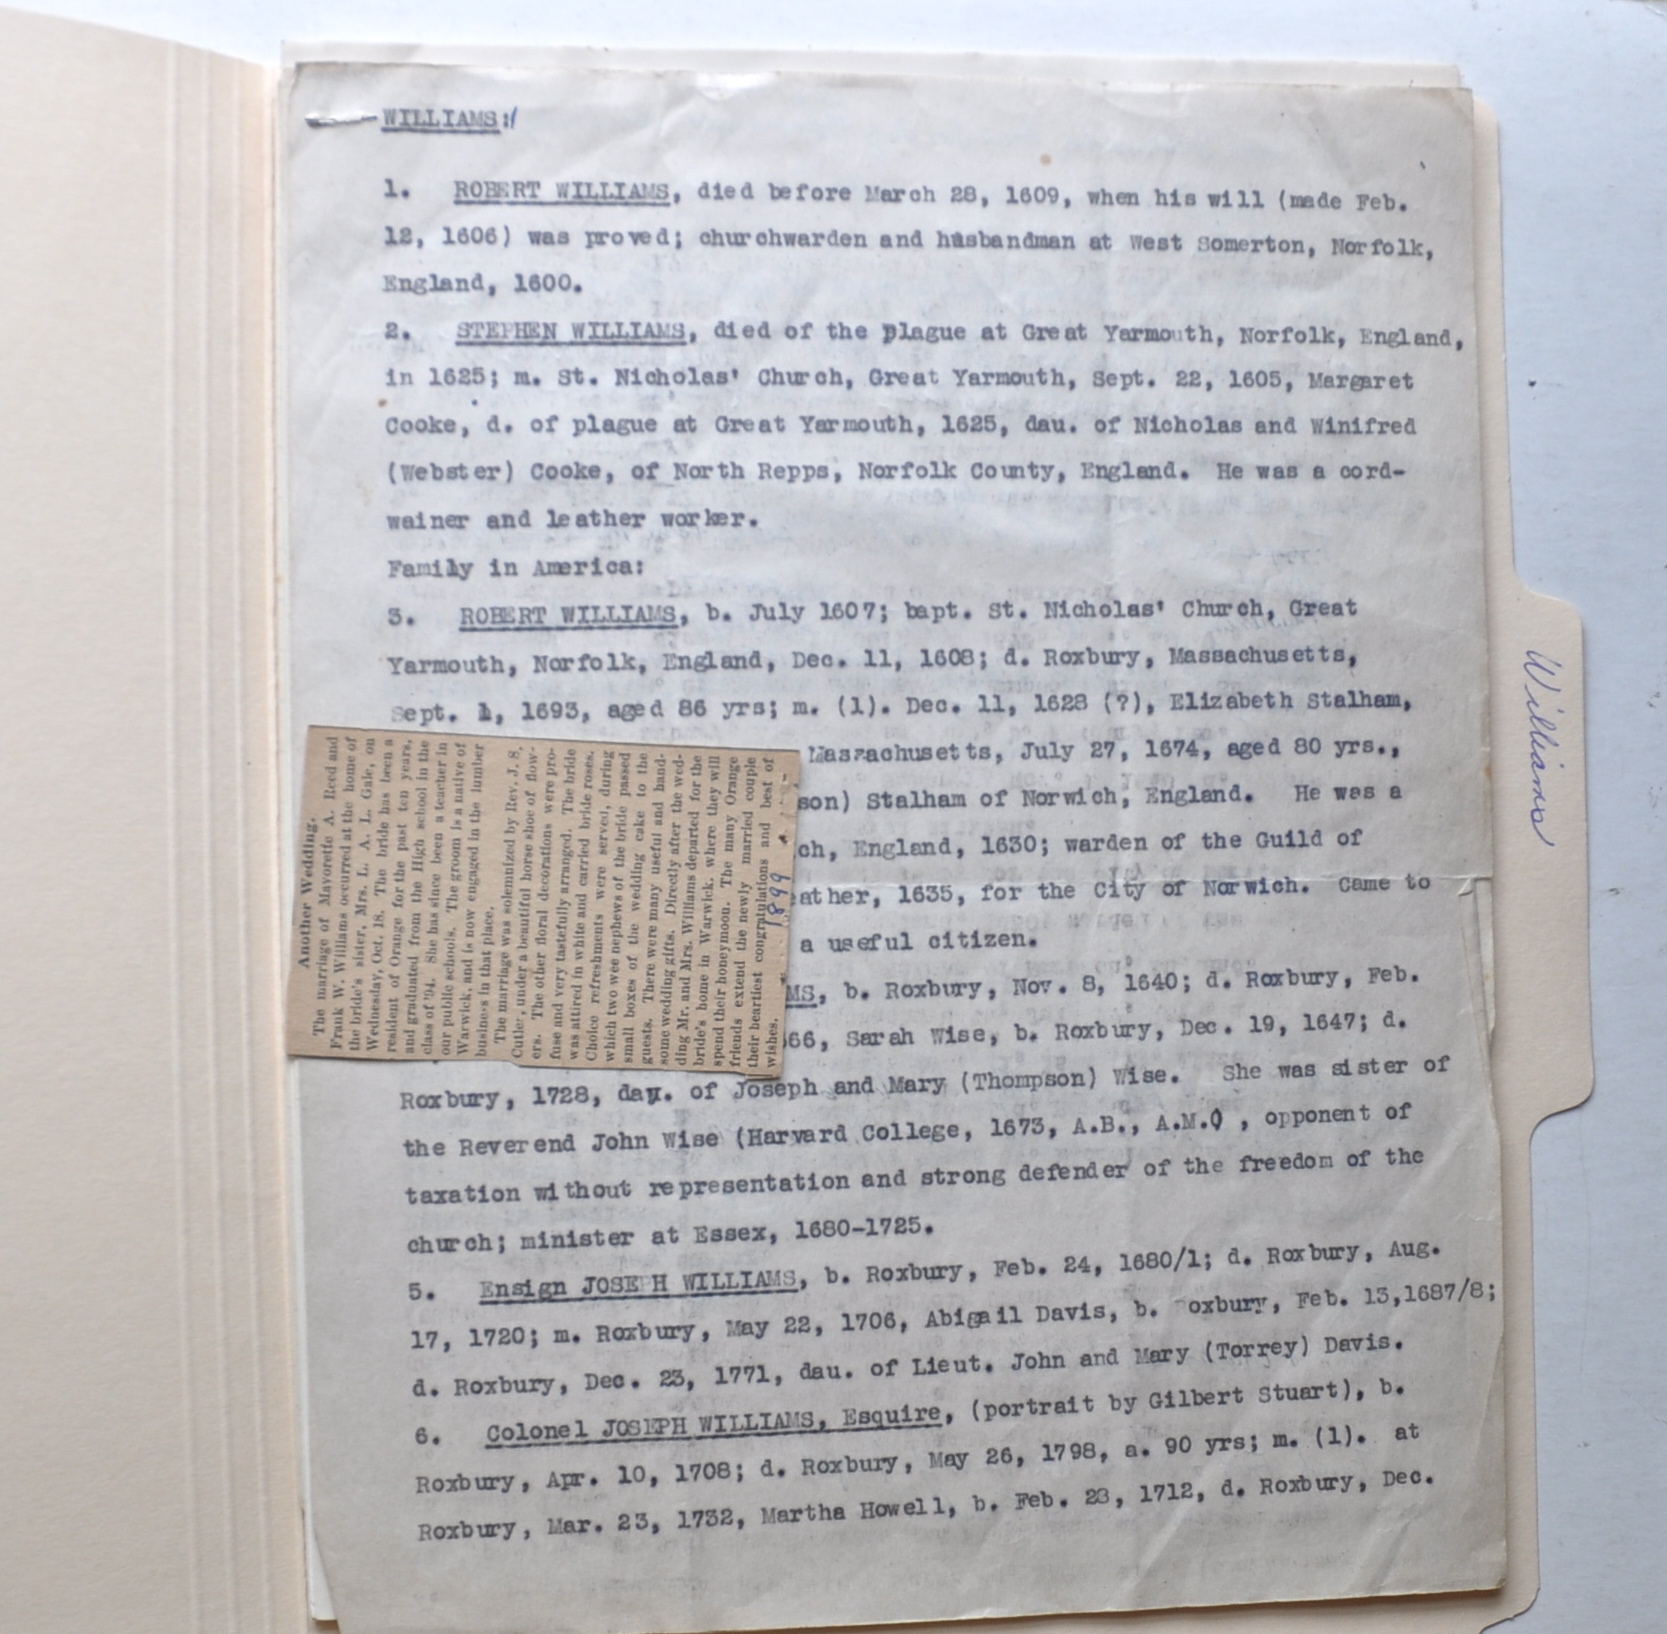 WILLIAMS:
1. ROBERT WILLIAMS, died before March 28, 1609, when his will (made Feb.
12, 1606) was proved; churchwarden and husbandman at West Somerton, Norfolk,
England, 1600.
2. STEPHEN WILLIAMS, died of the plague at Great Yarmouth, Norfolk, England,
in 1625; m. St. Nicholas' Church, Great Yarmouth, Sept. 22, 1605, Margaret
Cooke, d. of plague at Great Yarmouth, 1625, dau. of Nicholas and Winifred
(Webster) Cooke, of North Repps, Norfolk County, England. He was a cord-
wainer and leather worker.
Family in America:
3. ROBERT WILLIAMS, b. July 1607; bapt. St. Nicholas' Church, Great
Yarmouth, Norfolk, England, Dec. 11, 1608; d. Roxbury, Massachusetts,
Sept. 1, 1693, aged 86 yrs; m. (1). Dec. 11, 1628 (?), Elizabeth Stalham,
Massachusetts, July 27, 1674, aged 80 yrs.,
son) Stalham of Norwich, England. He was a
ch, England, 1630; warden of the Guild of
eather, 1635, for the City of Norwich. Came to
a useful citizen.
MS, b. Roxbury, Nov. 8, 1640; d. Roxbury, Feb.
66, Sarah Wise, b. Roxbury, Dec. 19, 1647; d.
Roxbury, 1728, dau. of Joseph and Mary (Thompson) Wise. She was sister of
the Reverend John Wise (Harvard College, 1673, A.B., A.M.) , opponent of
taxation without representation and strong defender of the freedom of the
church; minister at Essex, 1680-1725.
5. Ensign JOSEPH WILLIAMS, b. Roxbury, Feb. 24, 1680/1; d. Roxbury, Aug.
17, 1720; m. Roxbury, May 22, 1706, Abigail Davis, b. oxbury, Feb. 13,1687/8;
d. Roxbury, Dec. 23, 1771, dau. of Lieut. John and Mary (Torrey) Davis.
6. Colonel JOSEPH WILLIAMS, Esquire, (portrait by Gilbert Stuart), b.
Roxbury, Apr. 10, 1708; d. Roxbury, May 26, 1798, a. 90 yrs; m. (1). at
Roxbury, Mar. 23, 1732, Martha Howell, b. Feb. 23, 1712, d. Roxbury, Dec.
Another Wedding.
The marriage of Mayorette A. Reed and
Frank W. Williams occurred at the home of
the bride's sister, Mrs. L. A. L. Gale, on
Wednesday, Oct. 18. The bride has been a
resident of Orange for the past ten years,
and graduated from the High school in the
class of '94. She has since been a teacher in
our public schools. The groom is a native of
Warwick, and is now engaged in the lumber
business in that place.
The marriage was solemnized by Rev. J. S.
Cutler, under a beautiful horse shoe of flow-
ers. The other floral decorations were pro-
fuse and very tastefully arranged. The bride
was attired in white and carried bride roses.
Choice refreshments were served, during
which two wee nephews of the bride passed
small boxes of the wedding cake to the
guests. There were many useful and hand-
some wedding gifts. Directly after the wed-
ding Mr. and Mrs. Williams departed for the
bride's home in Warwick, where they will
spend their honeymoon. The many Orange
friends extend the newly married couple
their heartiest congratulations and best of
wishes.
1899
Williams